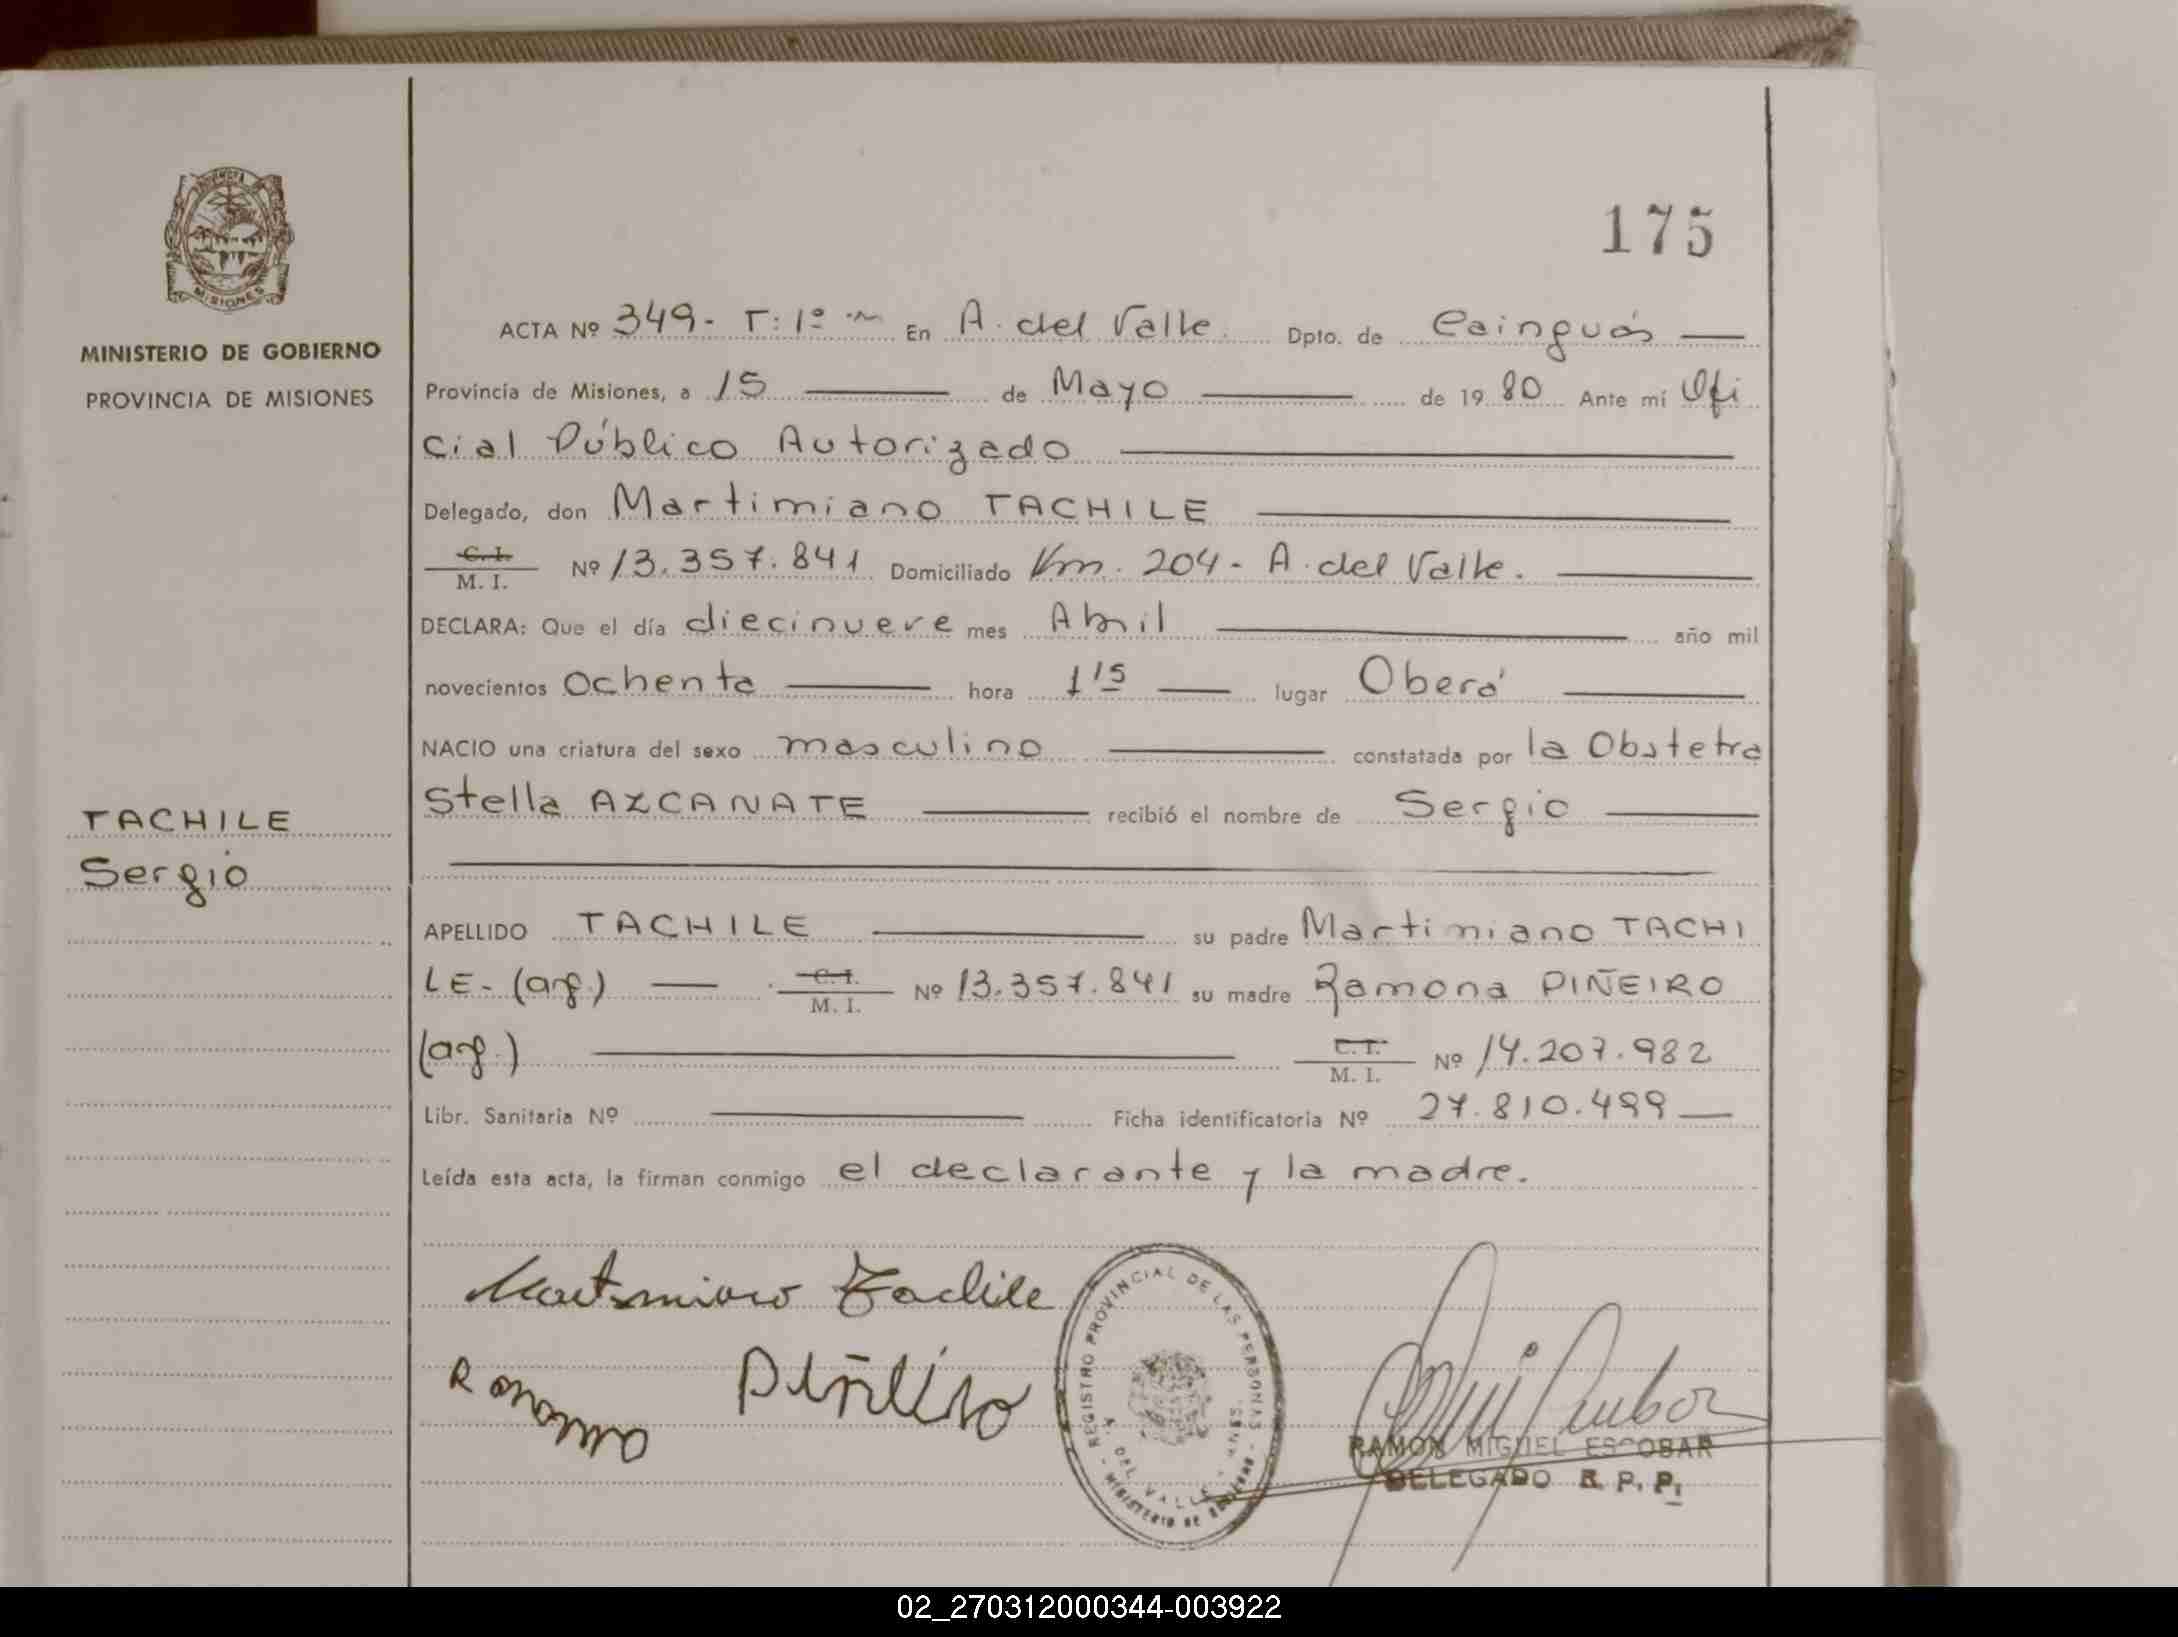 175
MINISTERIO DE GOBIERNO
PROVINCIA DE MISIONES
ACTA Nº 349- T: 1º En A. del Valle. Dpto. de Cainguás
Provincia de Misiones, a 15 de Mayo de 19 80 Ante mí Ofi
cial Público Autorizado
Delegado, don Martimiano TACHILE
C. I.
M. I. Nº 13.357.841 Domiciliado Km. 204- A. del Valle.
DECLARA: Que el día diecinueve mes Abril año mil
novecientos Ochenta hora 1 15 lugar Oberá
NACIO una criatura del sexo masculino constatada por la Obstetra
Stella AZCANATE recibió el nombre de Sergio
TACHILE
Sergio
APELLIDO TACHILE su padre Martimiano TACHI
LE- (arg.) C. I. M. I. Nº 13.357.841 su madre Ramona PIÑEIRO
(arg.) C. I. M. I. Nº 14.207.982
Libr. Sanitaria Nº Ficha identificatoria Nº 27.810.499
Leída esta acta, la firman conmigo el declarante y la madre.
Martimiano Tachile
Ramona Piñeiro
REGISTRO PROVINCIAL DE LAS PERSONAS
A. DEL VALLE
MINISTERIO DE GOBIERNO
RAMON MIGUEL ESCOBAR
DELEGADO R. P. P.
MISIONES
02_270312000344-003922